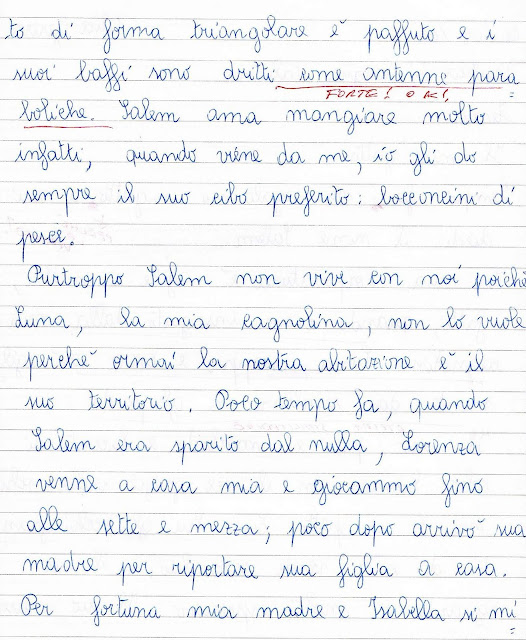 to di forma triangolare è paffuto e i
suoi baffi sono dritti come antenne para
FORTE! O K!,
boliche. Salem ama mangiare molto
infatti, quando viene da me, io gli do
sempre il suo cibo preferito: bocconcini di
pesce.
Purtroppo Salem non vive con noi poiché
Luna, la mia cagnolina, non lo vuole
perché ormai la nostra abitazione è il
suo territorio. Poco tempo fa, quando
Salem era sparito dal nulla, Lorenza
venne a casa mia e giocammo fino
alle sette e mezza; poco dopo arrivò sua
madre per riportare sua figlia a casa.
Per fortuna mia madre e Isabella si mi